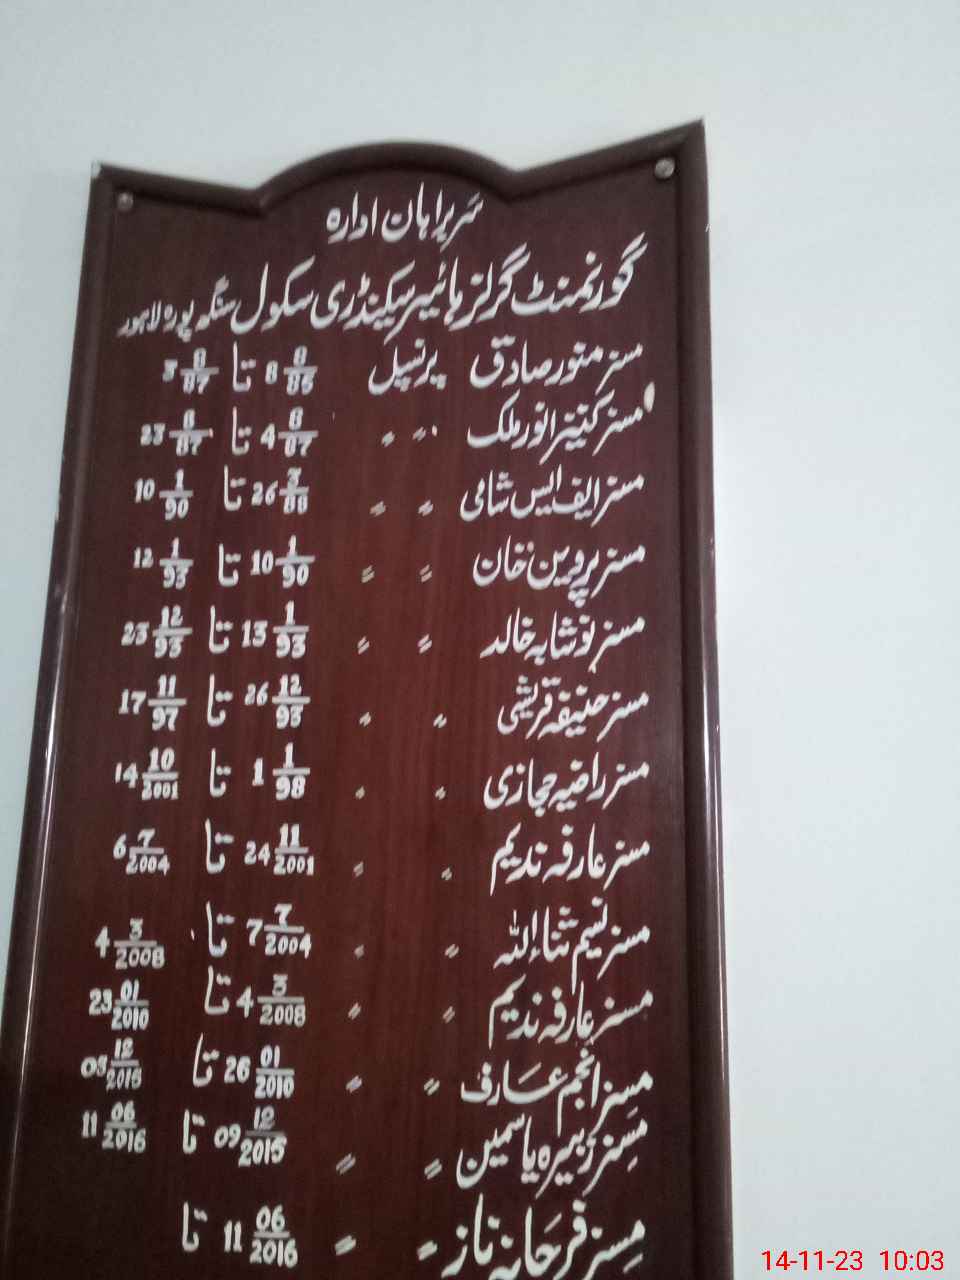 سربراہان ادارہ
گورنمنٹ گرلز ہائیر سیکنڈری سکول سنگھ پورہ لاہور
مسز منور صادق پرنسپل 8 8/85 تا 3 8/87
مسز کنیز انور ملک 〃 〃 4 8/87 تا 23 6/87
مسز ایف ایس شامی 〃 〃 26 3/88 تا 10 1/90
مسز پروین خان 〃 〃 10 1/90 تا 12 1/93
مسز نوشابہ خالد 〃 〃 13 1/93 تا 23 12/93
مسز حنیفہ قریشی 〃 〃 26 12/93 تا 17 11/97
مسز راضیہ حجازی 〃 〃 1 1/98 تا 14 10/2001
مسز عارفہ ندیم 〃 〃 24 11/2001 تا 6 7/2004
مسز نسیم ثناء اللہ 〃 〃 7 7/2004 تا 4 3/2008
مسز عارفہ ندیم 〃 〃 4 3/2008 تا 23 01/2010
مسز انجم عارف 〃 〃 26 01/2010 تا 03 12/2015
مسز زبیرہ یاسمین 〃 〃 09 12/2015 تا 11 06/2016
مسز فرحانہ ناز 〃 〃 11 06/2016 تا
14-11-23 10:03